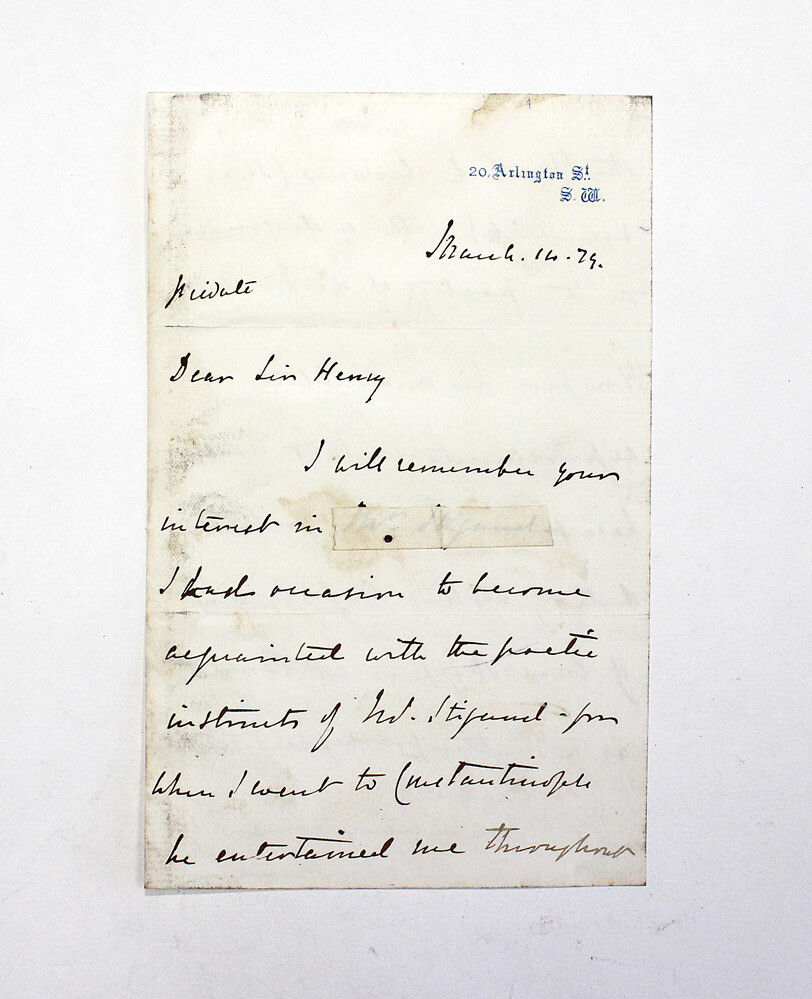 20, Arlington St.
S. W.
March. 14. 79.
Private
Dear Sir Henry
I will remember your
interest in Mr. Stigand -
I had occasion to become
acquainted with the poetic
instincts of Mr. Stigand - for
when I went to Constantinople
he entertained me throughout